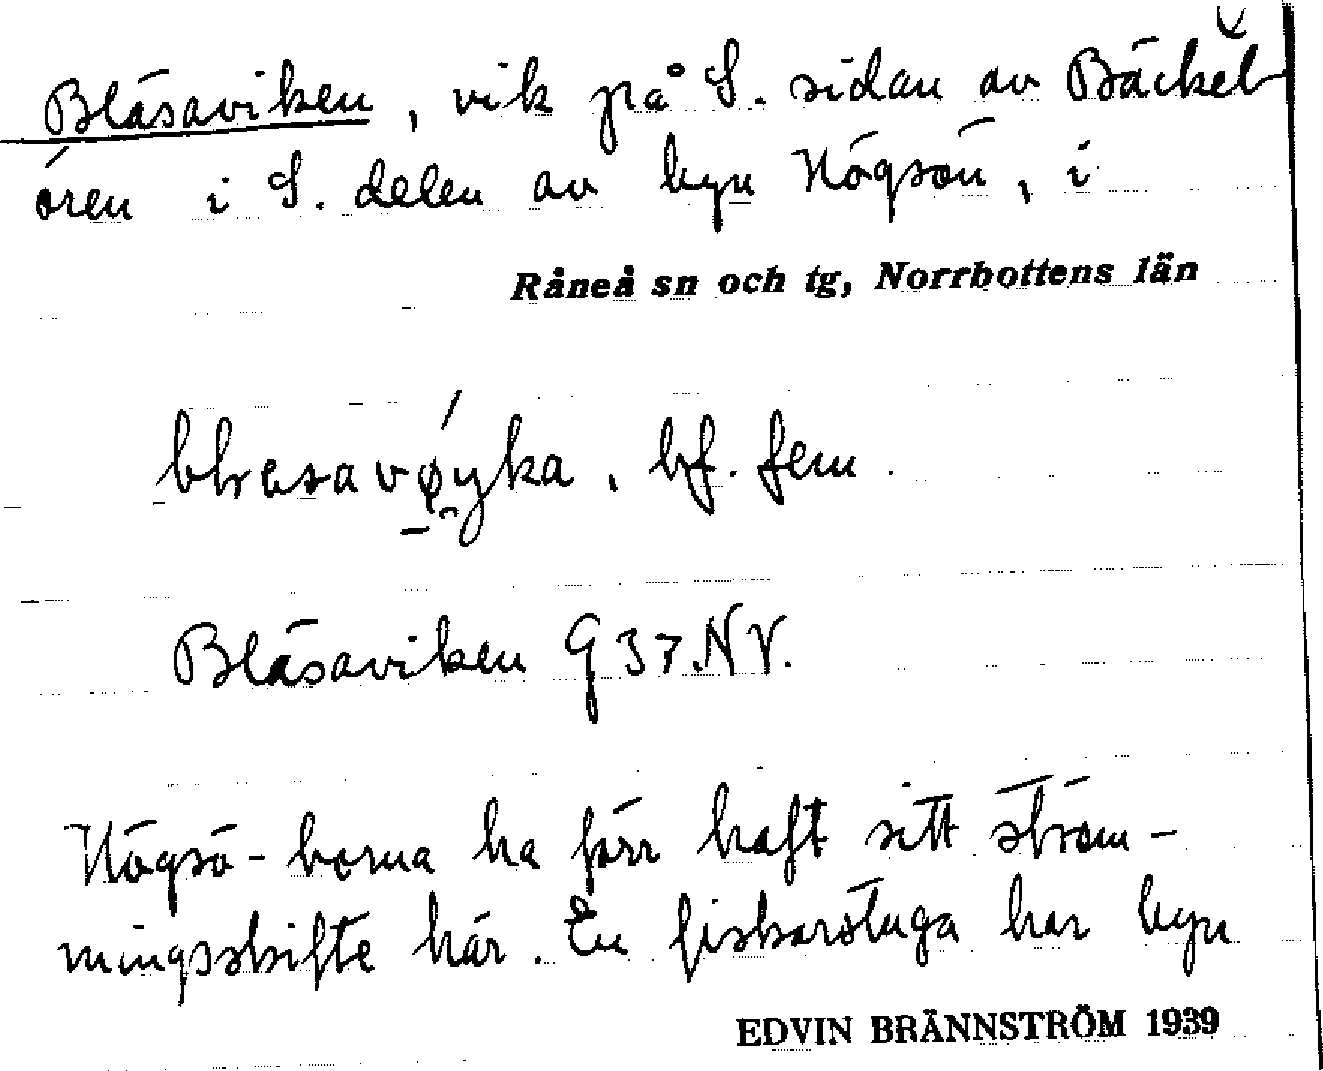 Bläsaviken, vik på S. sidan av Bäckel-
ören i S. delen av byn Högsön, i
Råneå sn och tg, Norrbottens län
bf. fem.
Bläsaviken G 37.NV.
Högsö-borna ha förr haft sitt ström-
mingsskifte här. En fiskarstuga har byn
EDVIN BRÄNNSTRÖM 1939